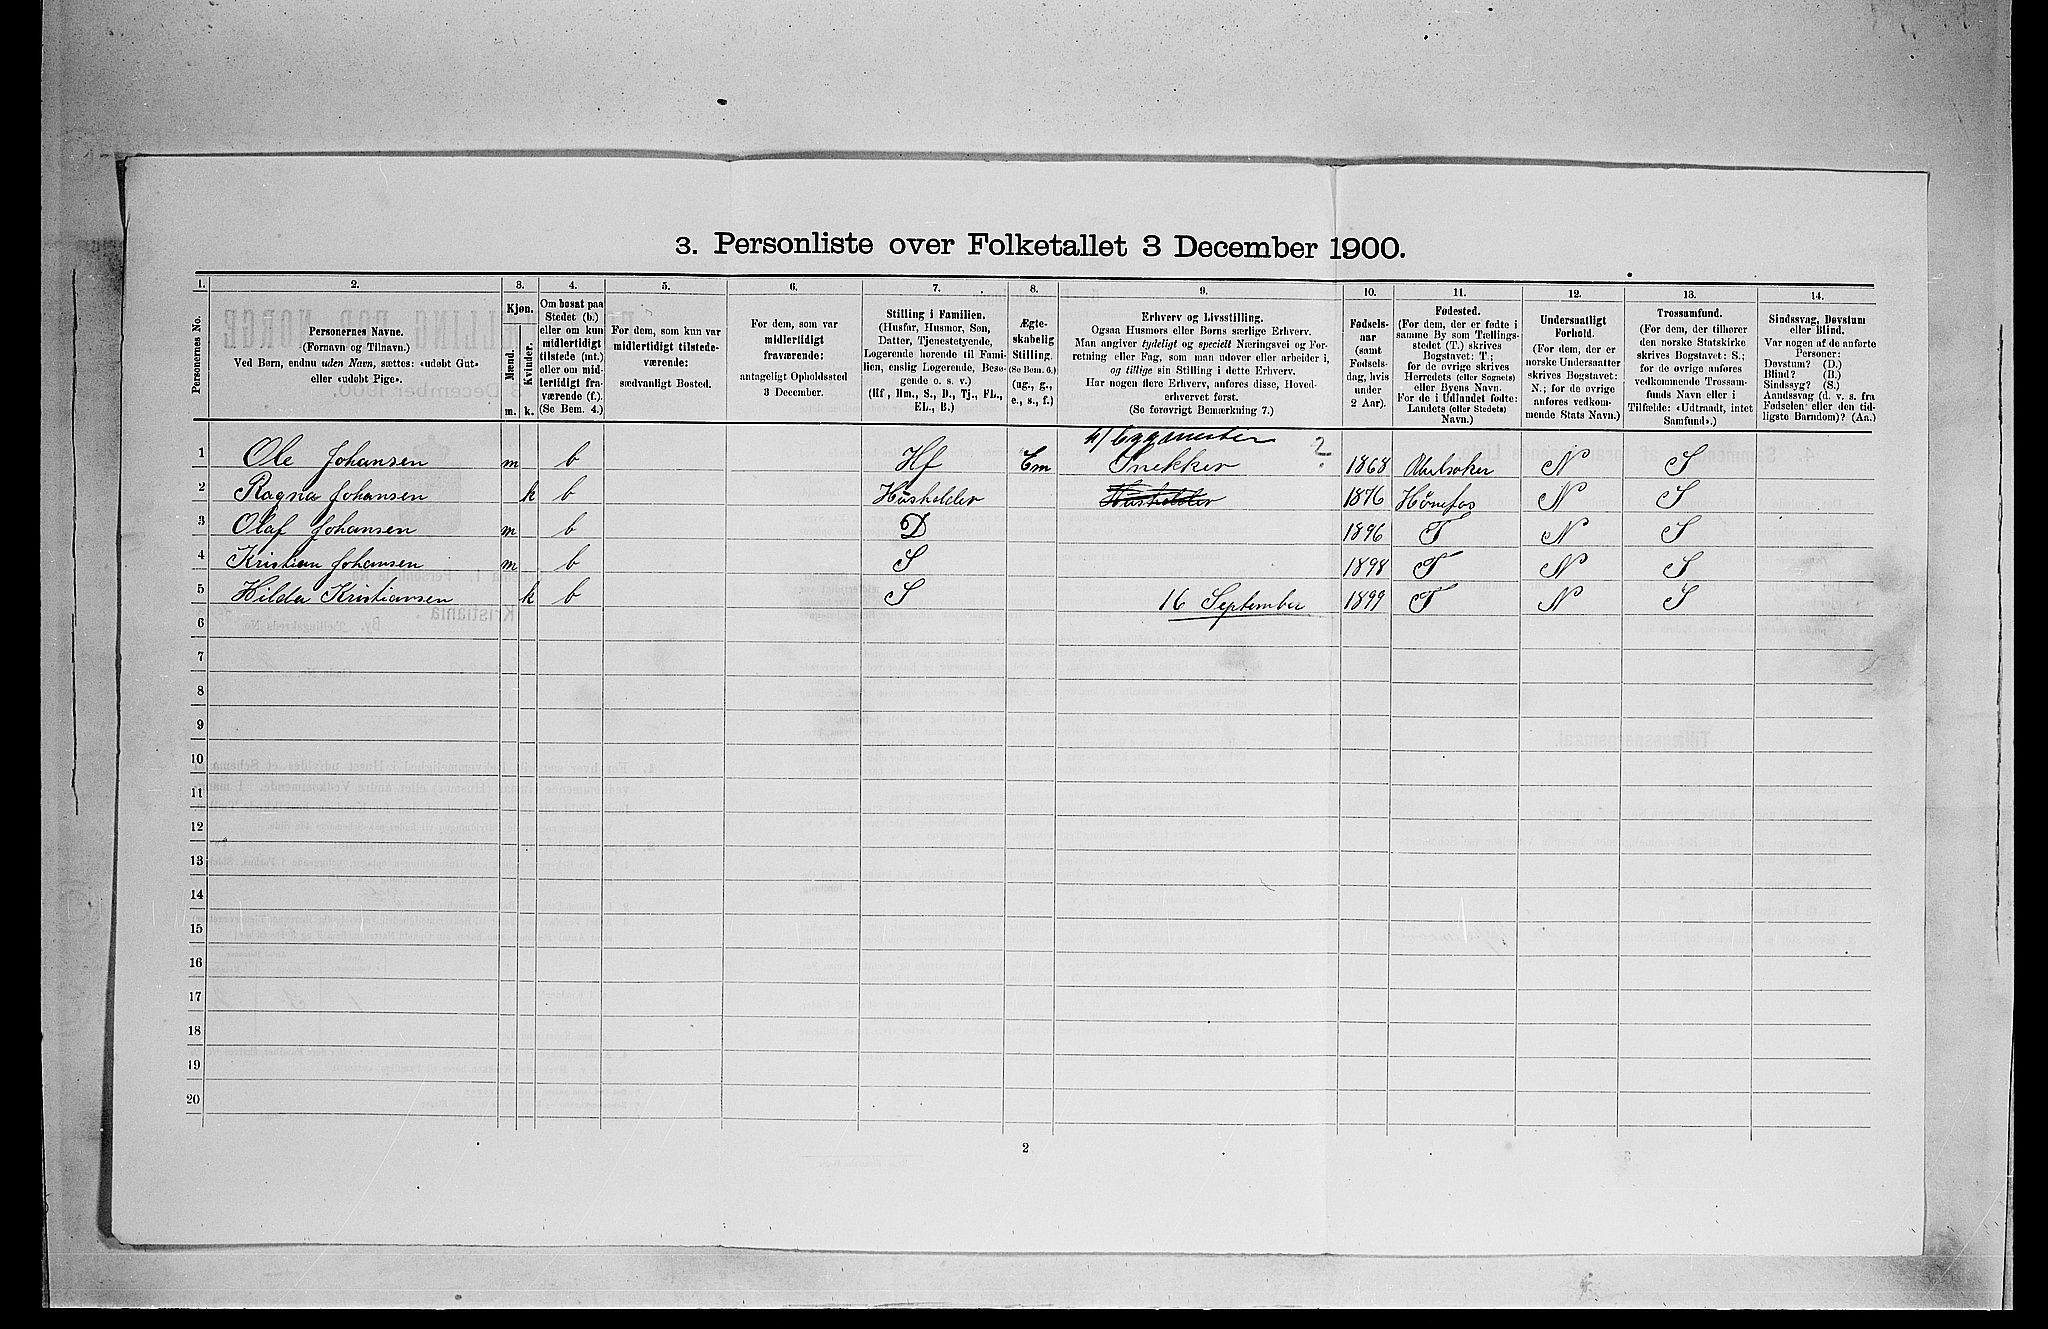 3. Personliste over Folketallet 3 December 1900.
1. 2. 3. 4. 5. 6. 7. 8. 9. 10. 11. 12. 13. 14.
Personernes No.
Personernes Navne.
(Fornavn og Tilnavn.)
Ved Børn, endnu uden Navn, sættes: «udøbt Gut»
eller «udøbt Pige».
Kjøn.
Mænd.
Kvinder.
m. k.
Om bosat paa
Stedet (b.)
eller om kun
midlertidigt
tilstede (mt.)
eller om mid-
lertidigt fra-
værende (f.)
(Se Bem. 4.)
For dem, som kun var
midlertidigt tilstede-
værende:
sædvanligt Bosted.
For dem, som var
midlertidigt
fraværende:
antageligt Opholdssted
3 December.
Stilling i Familien.
(Husfar, Husmor, Søn,
Datter, Tjenestetyende,
Logerende hørende til Fami-
lien, enslig Logerende, Besø-
gende o. s. v.)
(Hf, Hm., S., D., Tj., FL.,
EL., B.)
Ægte-
skabelig
Stilling.
(Se Bem. 6.)
(ug., g.,
e., s., f.)
Erhverv og Livsstilling.
Ogsaa Husmors eller Børns særlige Erhverv.
Man angiver tydeligt og specielt Næringsvei og For-
retning eller Fag, som man udøver eller arbeider i,
og tillige sin Stilling i dette Erhverv.
Har nogen flere Erhverv, anføres disse, Hoved-
erhvervet først.
(Se forøvrigt Bemærkning 7.)
Fødsels-
aar
(samt
Fødsels-
dag, hvis
under
2 Aar).
Fødested.
(For dem, der er fødte i
samme By som Tællings-
stedet (T.) skrives
Bogstavet: T.;
for de øvrige skrives
Herredets (eller Sognets)
eller Byens Navn.
For de i Udlandet fødte:
Landets (eller Stedets)
Navn.)
Undersaatligt
Forhold.
(For dem, der er
norske Undersaatter
skrives Bogstavet:
N.; for de øvrige
anføres vedkom-
mende Stats Navn.)
Trossamfund.
(For dem, der tilhører
den norske Statskirke
skrives Bogstavet: S.;
for de øvrige anføres
vedkommende Trossam-
funds Navn eller i
Tilfælde: «Udtraadt, intet
Samfund».)
Sindssvag, Døvstum
eller Blind.
Var nogen af de anførte
Personer:
Døvstum? (D.)
Blind? (B.)
Sindssyg? (S.)
Aandssvag (d. v. s. fra
Fødselen eller den tid-
ligste Barndom)? (Aa.)
Byggmester
1 Ole Johansen m b Hf Em Snekker ? 1868 N S
2 Ragna Johansen k b Husholder Husholder 1876 Hønefos N S
3 Olaf Johansen m b D 1896 T N S
4 Kristian Johansen m b S 1898 T N S
5 Hilda Kristiansen k b S 16 September 1899 T N S
6
7
8
9
10
11
12
13
14
15
16
17
18
19
20
2